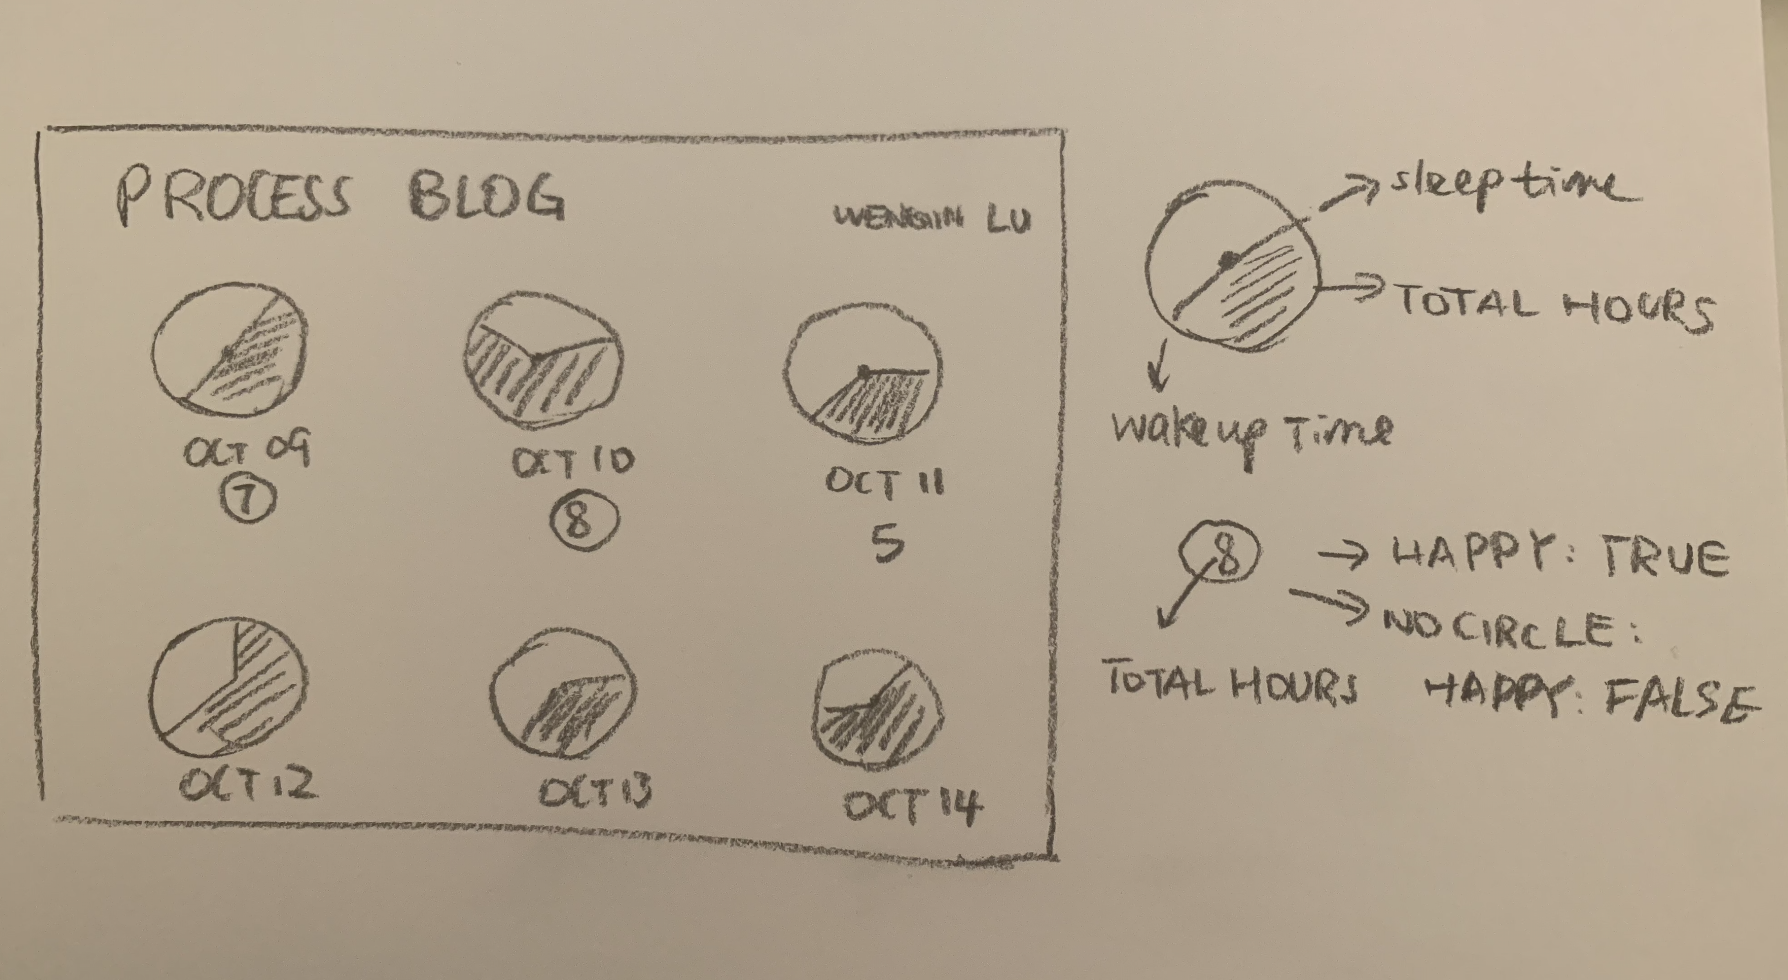 PROCESS BLOG
LU
OCT 09
OCT 10
OCT 11
7
8
5
OCT 12
OCT 13
OCT 14
sleep time
TOTAL HOURS
wake up Time
8
HAPPY: TRUE
NO CIRCLE:
HAPPY: FALSE
TOTAL HOURS